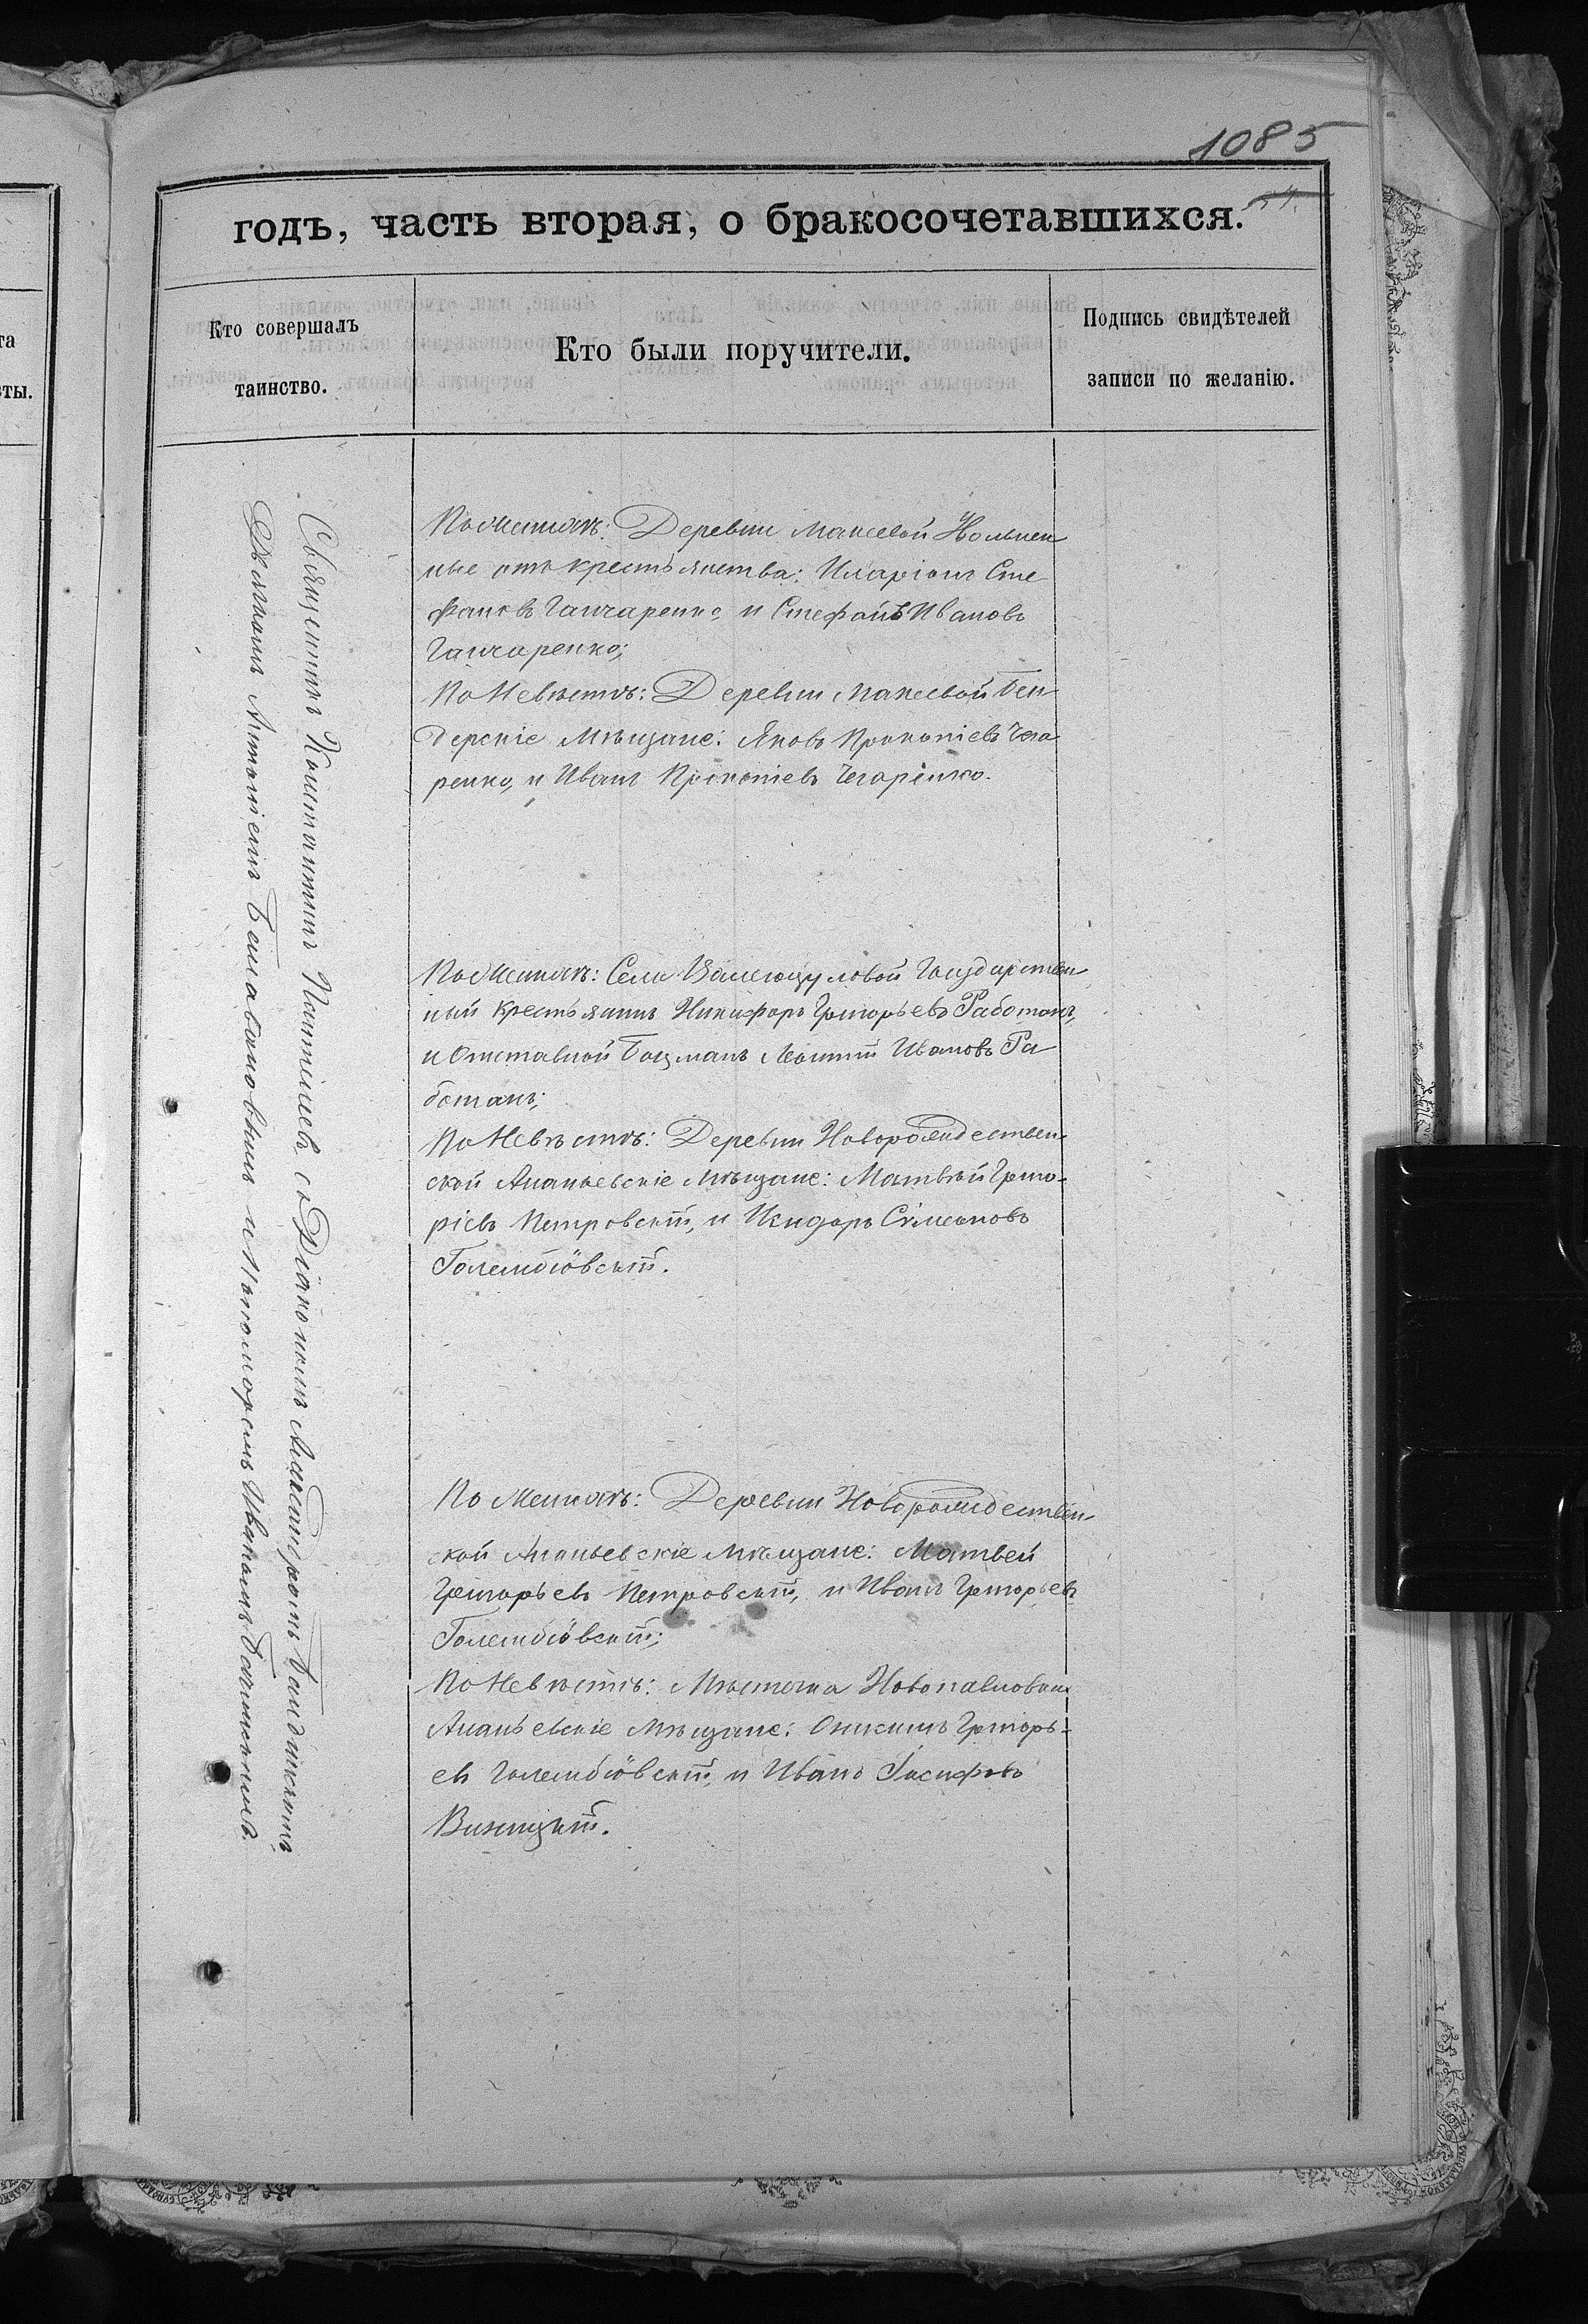 1085
годъ, часть вторая, о бракосочетавшихся.
Кто совершалъ
таинство.
Кто были поручители.
Подпись свидѣтелей
записи по желанію.
та
сты.
Священникъ Константинъ Пантелеев съ Діакономъ Александромъ
Дьячкомъ Антоніемъ и Пономоремъ Иваномъ
По Женихѣ: Деревни Макеевой
ные отъ крестьянства: Иларіонъ Сте
фановъ Ганчаренко, и Стефанъ Ивановъ
Ганчаренко;
По Невѣстѣ: Деревни Макеевой Бен
дерскіе Мѣщане: Яковъ Прокопіевъ Чега
ренко, и Иванъ Прокопіевъ Чегаренко.
По Женихѣ: Села Валегоцуловой Государствен
ный Крестьянинъ Никифоръ Григорьевъ Работанъ,
и Отставной Боцманъ Леонтій Ивановъ Ра
ботанъ;
По Невѣстѣ: Деревни Новорождествен-
ской Ананьевскіе Мѣщане: Матвѣй Григо-
ріевъ Петровскій, и Исидоръ Сѵмеоновъ
Голембіовскій.
По Женихѣ: Деревни Новорождествен-
ской Ананьевскіе Мѣщане: Матвей
Григорьевъ Петровскій, и Иванъ Григорьевъ
Голембіовскій;
По Невѣстѣ: Мѣстечка Новопавловки
Ананьевскіе Мѣщане: Онисимъ Григорь-
евъ Голембіовскій, и Иванъ Іосифовъ
Виницкій.